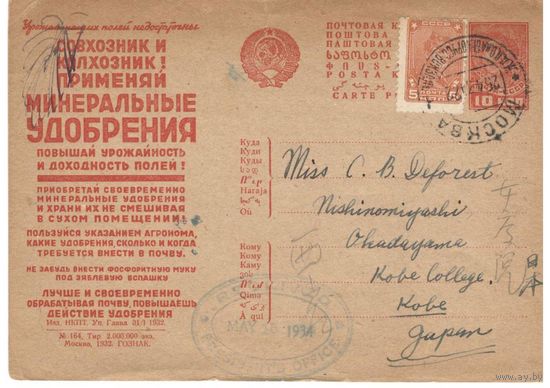 Урожай наших полей недостаточен
СОВХОЗНИК И
КОЛХОЗНИК!
ПРИМЕНЯЙ
МИНЕРАЛЬНЫЕ
УДОБРЕНИЯ
ПОВЫШАЙ УРОЖАЙНОСТЬ
И ДОХОДНОСТЬ ПОЛЕЙ!
ПРИОБРЕТАЙ СВОЕВРЕМЕННО
МИНЕРАЛЬНЫЕ УДОБРЕНИЯ
И ХРАНИ ИХ НЕ СМЕШИВАЯ
В СУХОМ ПОМЕЩЕНИИ
ПОЛЬЗУЙСЯ УКАЗАНИЕМ АГРОНОМА,
КАКИЕ УДОБРЕНИЯ, СКОЛЬКО И КОГДА
ТРЕБУЕТСЯ ВНЕСТИ В ПОЧВУ.
НЕ ЗАБУДЬ ВНЕСТИ ФОСФОРИТНУЮ МУКУ
ПОД ЗЯБЛЕВУЮ ВСПАШКУ
ЛУЧШЕ И СВОЕВРЕМЕННО
ОБРАБАТЫВАЯ ПОЧВУ, ПОВЫШАЕШЬ
ДЕЙСТВИЕ УДОБРЕНИЯ
Изд. НКПТ. Уп. Главл 31/1 1932.
№ 164. Тир 2.000.000 экз.
Москва, 1932. ГОЗНАК.
ПОЧТОВАЯ К
ПОШТОВА
ПАШТОВАЯ
POSTA K
CARTE P
СССР
5
10
МОСКВА
Куда
Куди
Куды
Haraja
Où
Кому
Кому
Каму
Qima
A qui
Miss C. B. Deforest
Nishinomiyashi
Okadayama
Kobe College,
Kobe
Japan
女学院
日本
MAY 1934
OFFICE